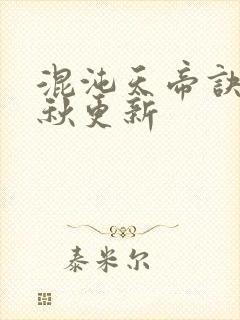 混沌天帝訣
秋更新
泰米尔